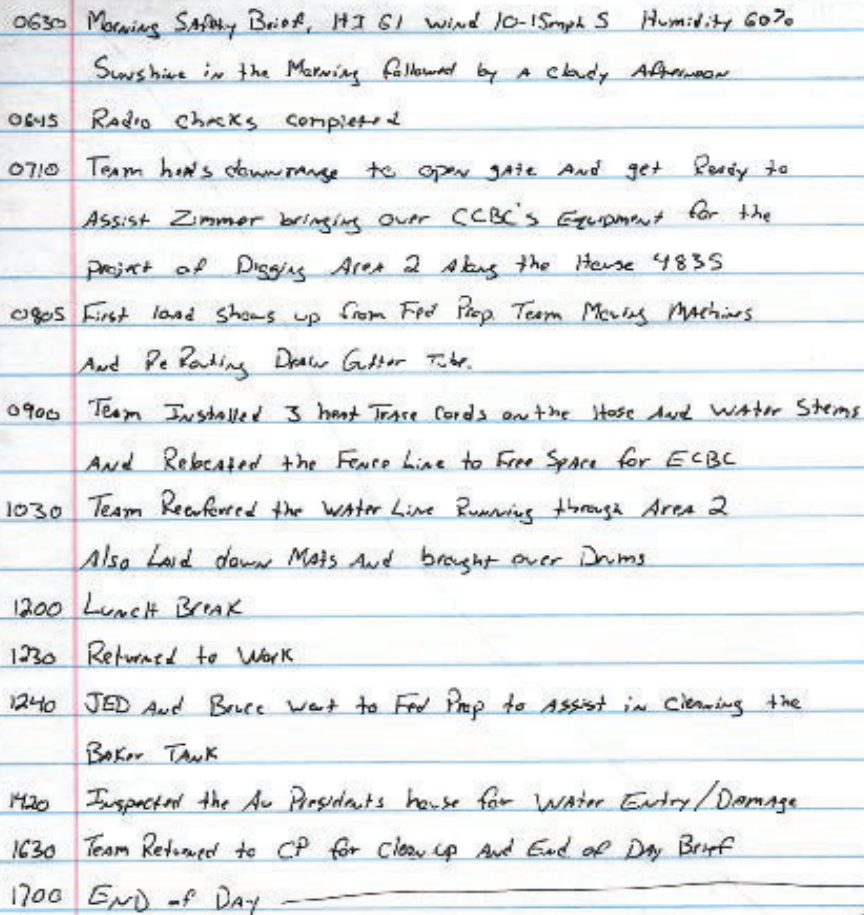 0630 Morning Safety Brief, HI 61 wind 10-15mph S Humidity 60%
Sunshine in the Morning followed by A cloudy Afternoon
0645 Radio checks completed
0710 Team heads downrange to open gate And get Ready to
Assist Zimmer bringing over CCBC's Equipment for the
project of Digging Area 2 Along the House 4835
0805 First load shows up from Fed Prop. Team Moving Machines
And Re Routing Drain Gutter Tube.
0900 Team Installed 3 heat Trace Cords on the Hose And Water Stems
And Relocated the Fence Line to Free Space for ECBC
1030 Team the Water Line Running through Area 2
Also Laid down Mats And brought over Drums
1200 Lunch Break
1230 Returned to Work
1240 JED And Bruce went to Fed Prop to Assist in Cleaning the
Baker Tank
1420 Inspected the Au Presidents house for Water Entry/Damage
1630 Team Returned to CP for Clean up And End of Day Brief
1700 END of DAY